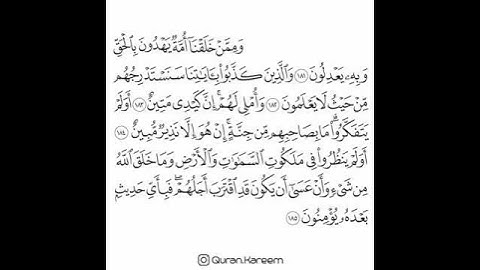 وَمِمَّنْ خَلَقْنَآ أُمَّةٌ يَهْدُونَ بِٱلْحَقِّ
وَبِهِۦ يَعْدِلُونَ ١٨١ وَٱلَّذِينَ كَذَّبُوا۟ بِـَٔايَـٰتِنَا سَنَسْتَدْرِجُهُم
مِّنْ حَيْثُ لَا يَعْلَمُونَ ١٨٢ وَأُمْلِى لَهُمْ ۚ إِنَّ كَيْدِى مَتِينٌ ١٨٣ أَوَلَمْ
يَتَفَكَّرُوا۟ ۗ مَا بِصَاحِبِهِم مِّن جِنَّةٍ ۚ إِنْ هُوَ إِلَّا نَذِيرٌ مُّبِينٌ ١٨٤
أَوَلَمْ يَنظُرُوا۟ فِى مَلَكُوتِ ٱلسَّمَـٰوَٰتِ وَٱلْأَرْضِ وَمَا خَلَقَ ٱللَّهُ
مِن شَىْءٍ وَأَنْ عَسَىٰٓ أَن يَكُونَ قَدِ ٱقْتَرَبَ أَجَلُهُمْ ۖ فَبِأَىِّ حَدِيثٍۭ
بَعْدَهُۥ يُؤْمِنُونَ ١٨٥
Quran.Kareem